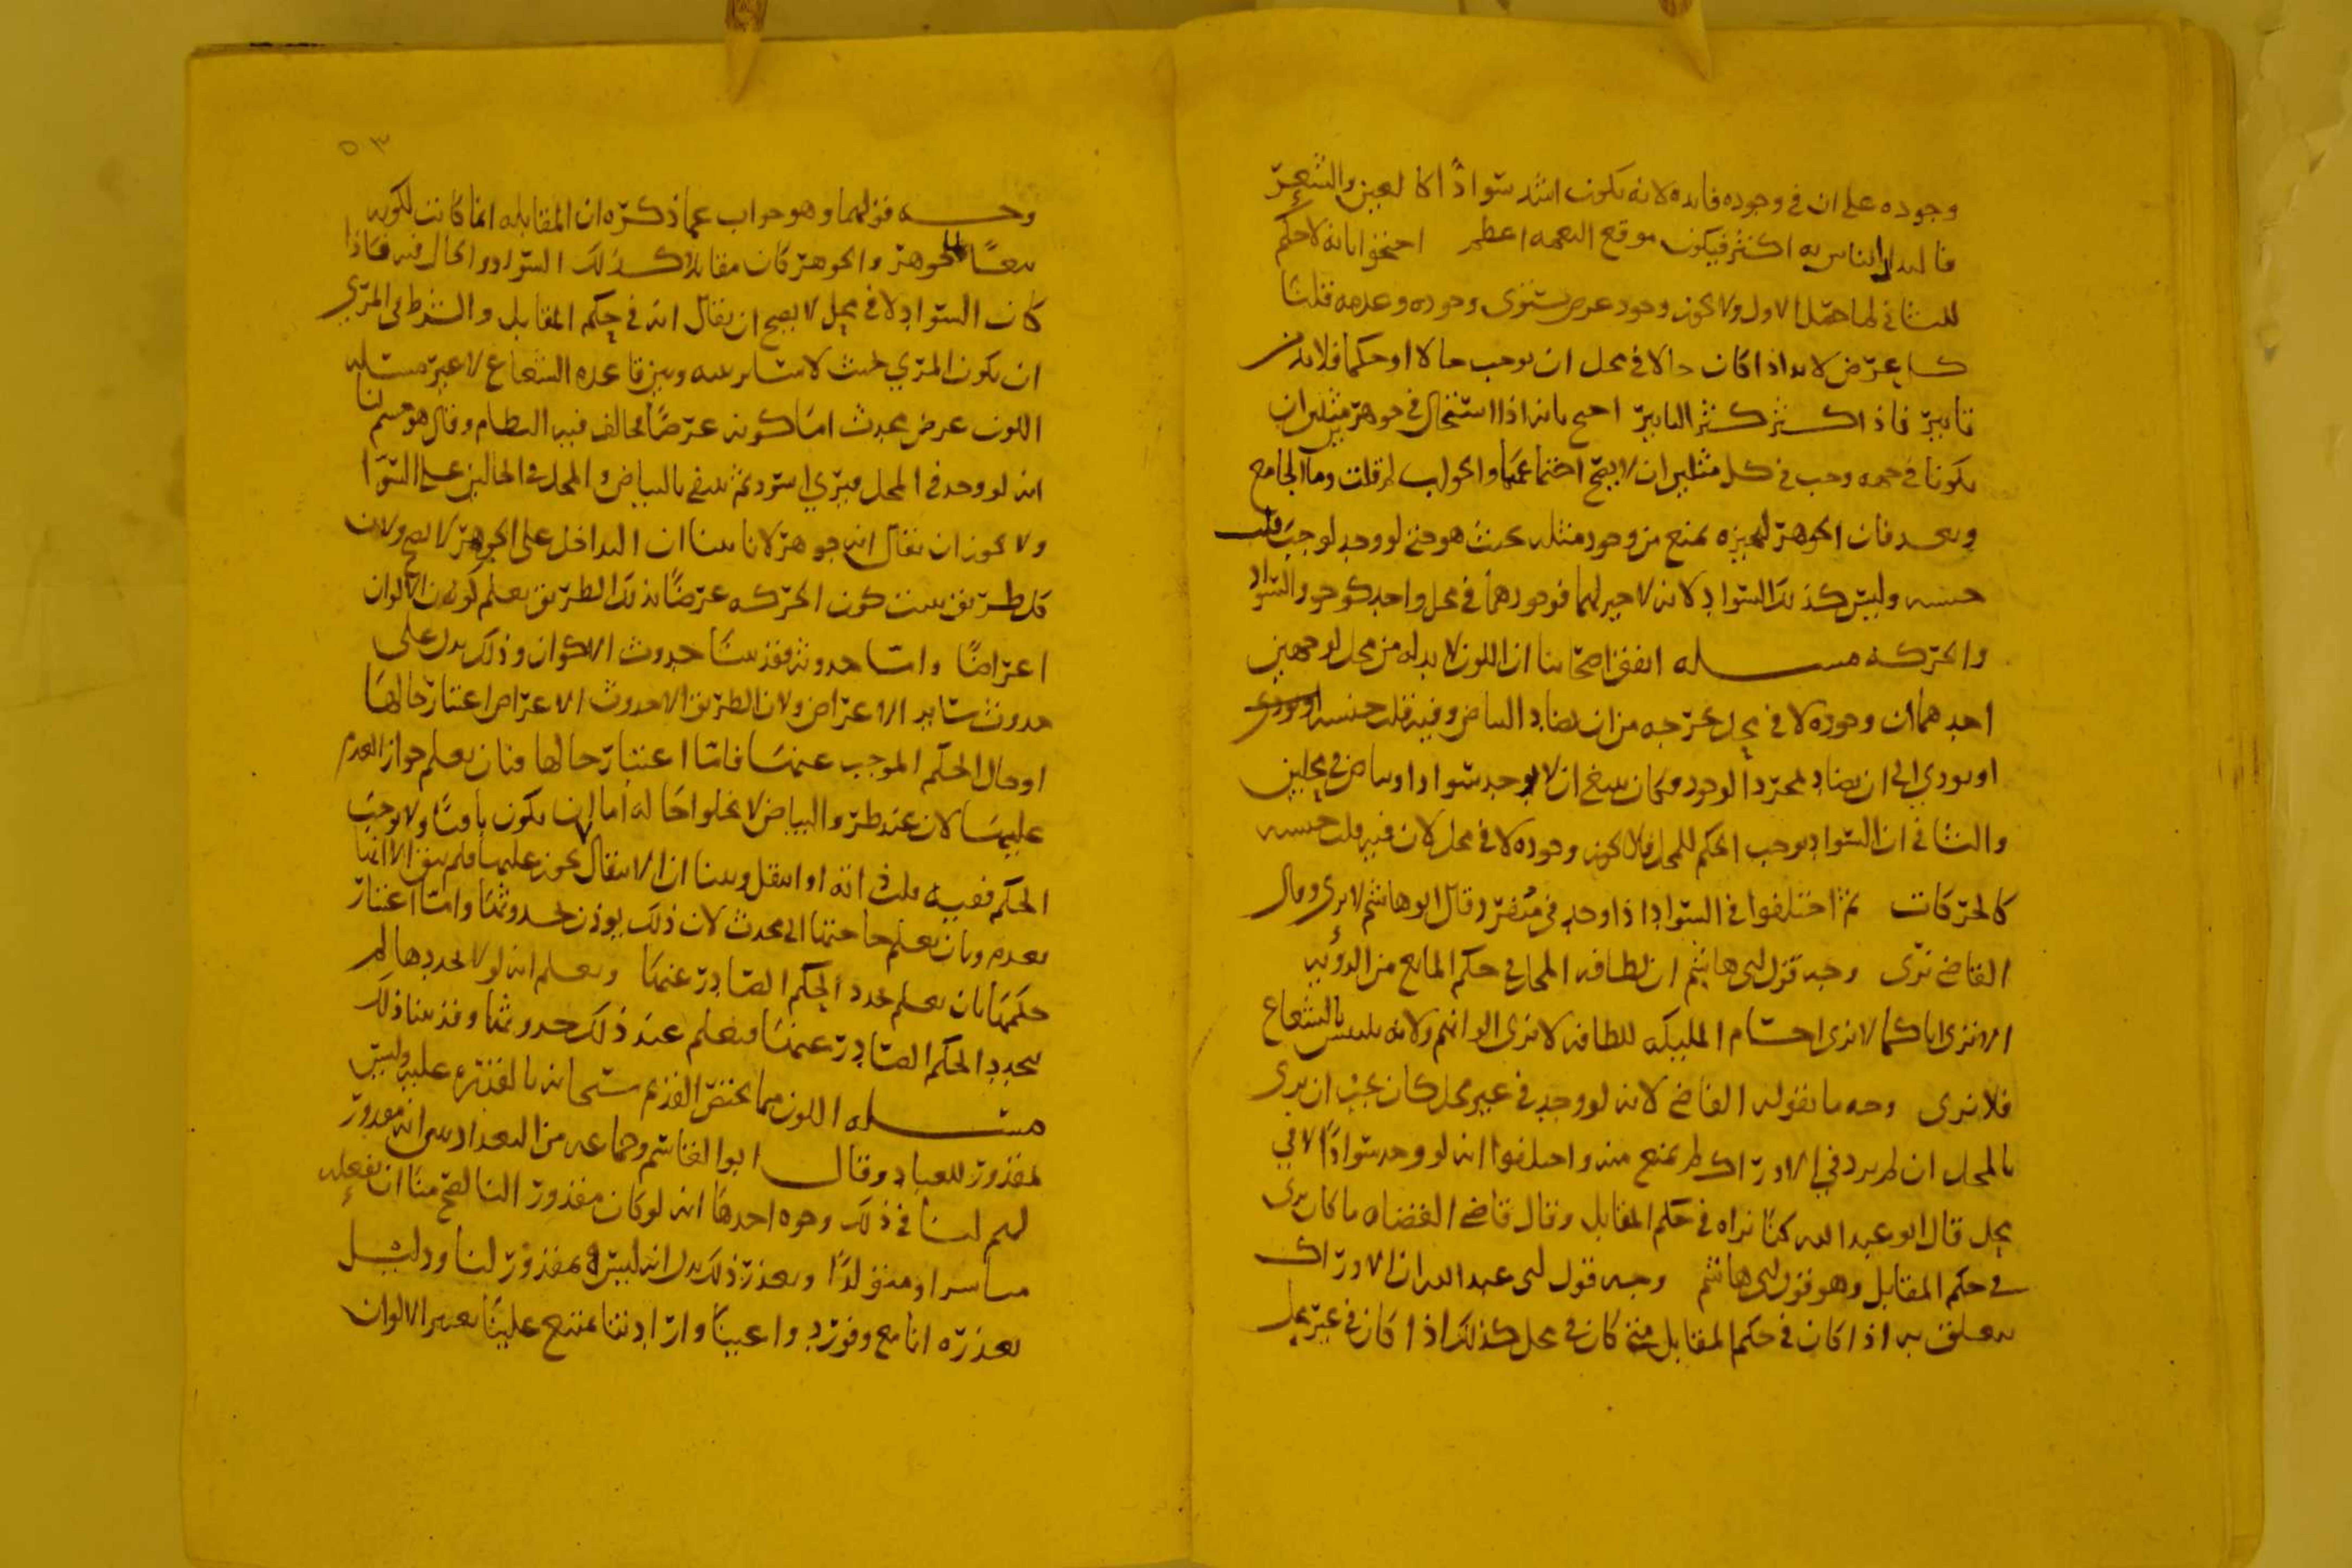 وجوده على ان في وجوده فايده لانه يكون اشد سوادًا كالعين والشعر
فالتداد الناس به اكثر فيكون موقع النعمه اعظم احتجوا بانه لا حكم
للثاني لم يحصل للاول ولا يجوز وجود عرض يستوي وجوده وعدمه قلنا
كل عرض لا بد اذا كان حالا في محل ان يوجب حالا او حكما فلا بد من
تاثير فاذا كثر كثر التاثير احتج بانه اذا استحال في جوهرين مثلين ان
يكونا في جهه وجب في كل مثلين ان لا يصح اجتماعهما والجواب لم قلت وما الجامع
وبعد فان الجوهر لتحيزه يمنع من وجود مثله بحيث هو حتى لو وجد لوجب قلب
جنسه وليس كذلك السواد لانه لا حيز لهما فوجودهما في محل واحد كوجود السواد
والحركه مسله اتفق اصحابنا ان اللون لا بد له من محل لوجهين
احدهما ان وجوده لا في محل يخرجه من ان يضاد البياض وفيه قلب جنسه
او يودي الى ان يضاد لمجرد الوجود وكان ينبغي ان لا يوجد سواد او بياض في محلين
والثاني ان السواد يوجب الحكم للمحل فلا يجوز وجوده لا في محل لان فيه قلب جنسه
كالحركات ثم اختلفوا في السواد اذا وجد في منفرد قال ابو هاشم لا يرى وقال
القاضي يرى وجه قول ابي هاشم ان لطافه المحل في حكم المانع من الرؤيه
الا ترى انا كما لا نرى اجسام المليكه للطافه لا نرى الوانهم ولانه بالشعاع
فلا يرى وجه ما يقوله القاضي لانه لو وجد في غير محل كان يجب ان يرى
بالمحل ان لم يرد في الادراك لم يمنع منه واختلفوا انه لو وجد سوادًا لا في
محل قال ابو عبد الله كنا نراه في حكم المقابل وقال قاضي القضاه ما كان يرى
في حكم المقابل وهو قول ابي هاشم وجه قول ابي عبد الله ان الادراك
يتعلق به اذا كان في حكم المقابل متى كان في محل كذلك اذا كان في غير محل
٥٣
وجه قولهما وهو جواب عما ذكره ان المقابله انما كانت لكونه
تبعًا للجوهر والجوهر كان مقابلا كذلك السواد والحال فيه فاذا
كان السواد لا في محل لا يصح ان يقال انه في حكم المقابل والشرط في المرئ
ان يكون المرئ بحيث لا ساتر بينه وبين قاعده الشعاع لا غير مسله
اللون عرض محدث اما كونه عرضًا فخالف فيه النظام وقال هو جسم لنا
انه لو وجد في المحل فيرى اسود ثم ينتفي بالبياض والمحل في الحالين على السوا
ولا يجوز ان يقال انه جوهر لانا بينا ان التداخل على الجوهر لا يصح ولان
كل طريق يثبت كون الحركه عرضًا بذلك الطريق يعلم كون الالوان
اعراضًا واما حدوثه فقد بينا حدوث الاكوان وذلك يدل على
حدوث ساير الاعراض ولان الطريق الى حدوث الاعراض اعتبار حالها
او حال الحكم الموجب عنها فاما اعتبار حالها فبان يعلم جواز العدم
عليها لان عند طرو البياض لا يخلوا حاله اما ان يكون باقيًا ولا يوجب
الحكم ففيه قلب ذاته او انتقل وبينا ان الانتقال لا يجوز عليها فلم يبق الا انها
تعدم وبان يعلم حاجتها الى محدث لان ذلك يوذن بحدوثها واما اعتبار
حكمها بان يعلم تجدد الحكم الصادر عنها ويعلم انه لولا تجددها لم
يتجدد الحكم الصادر عنها فيعلم عند ذلك حدوثها وقد بينا ذلك
مسله اللون مما يختص القديم سبحانه بالقدره عليه وليس
بمقدور للعباد وقال ابو القاسم وجماعه من البغداديين انه مقدور
لهم لنا في ذلك وجوه احدها انه لو كان مقدور لنا لصح منا ان نفعله
مباشرا او متولدًا وتعذر ذلك يدل انه ليس بمقدور لنا ودليل
تعذره انا مع وفور دواعينا وارادتنا يمتنع علينا تغيير الالوان